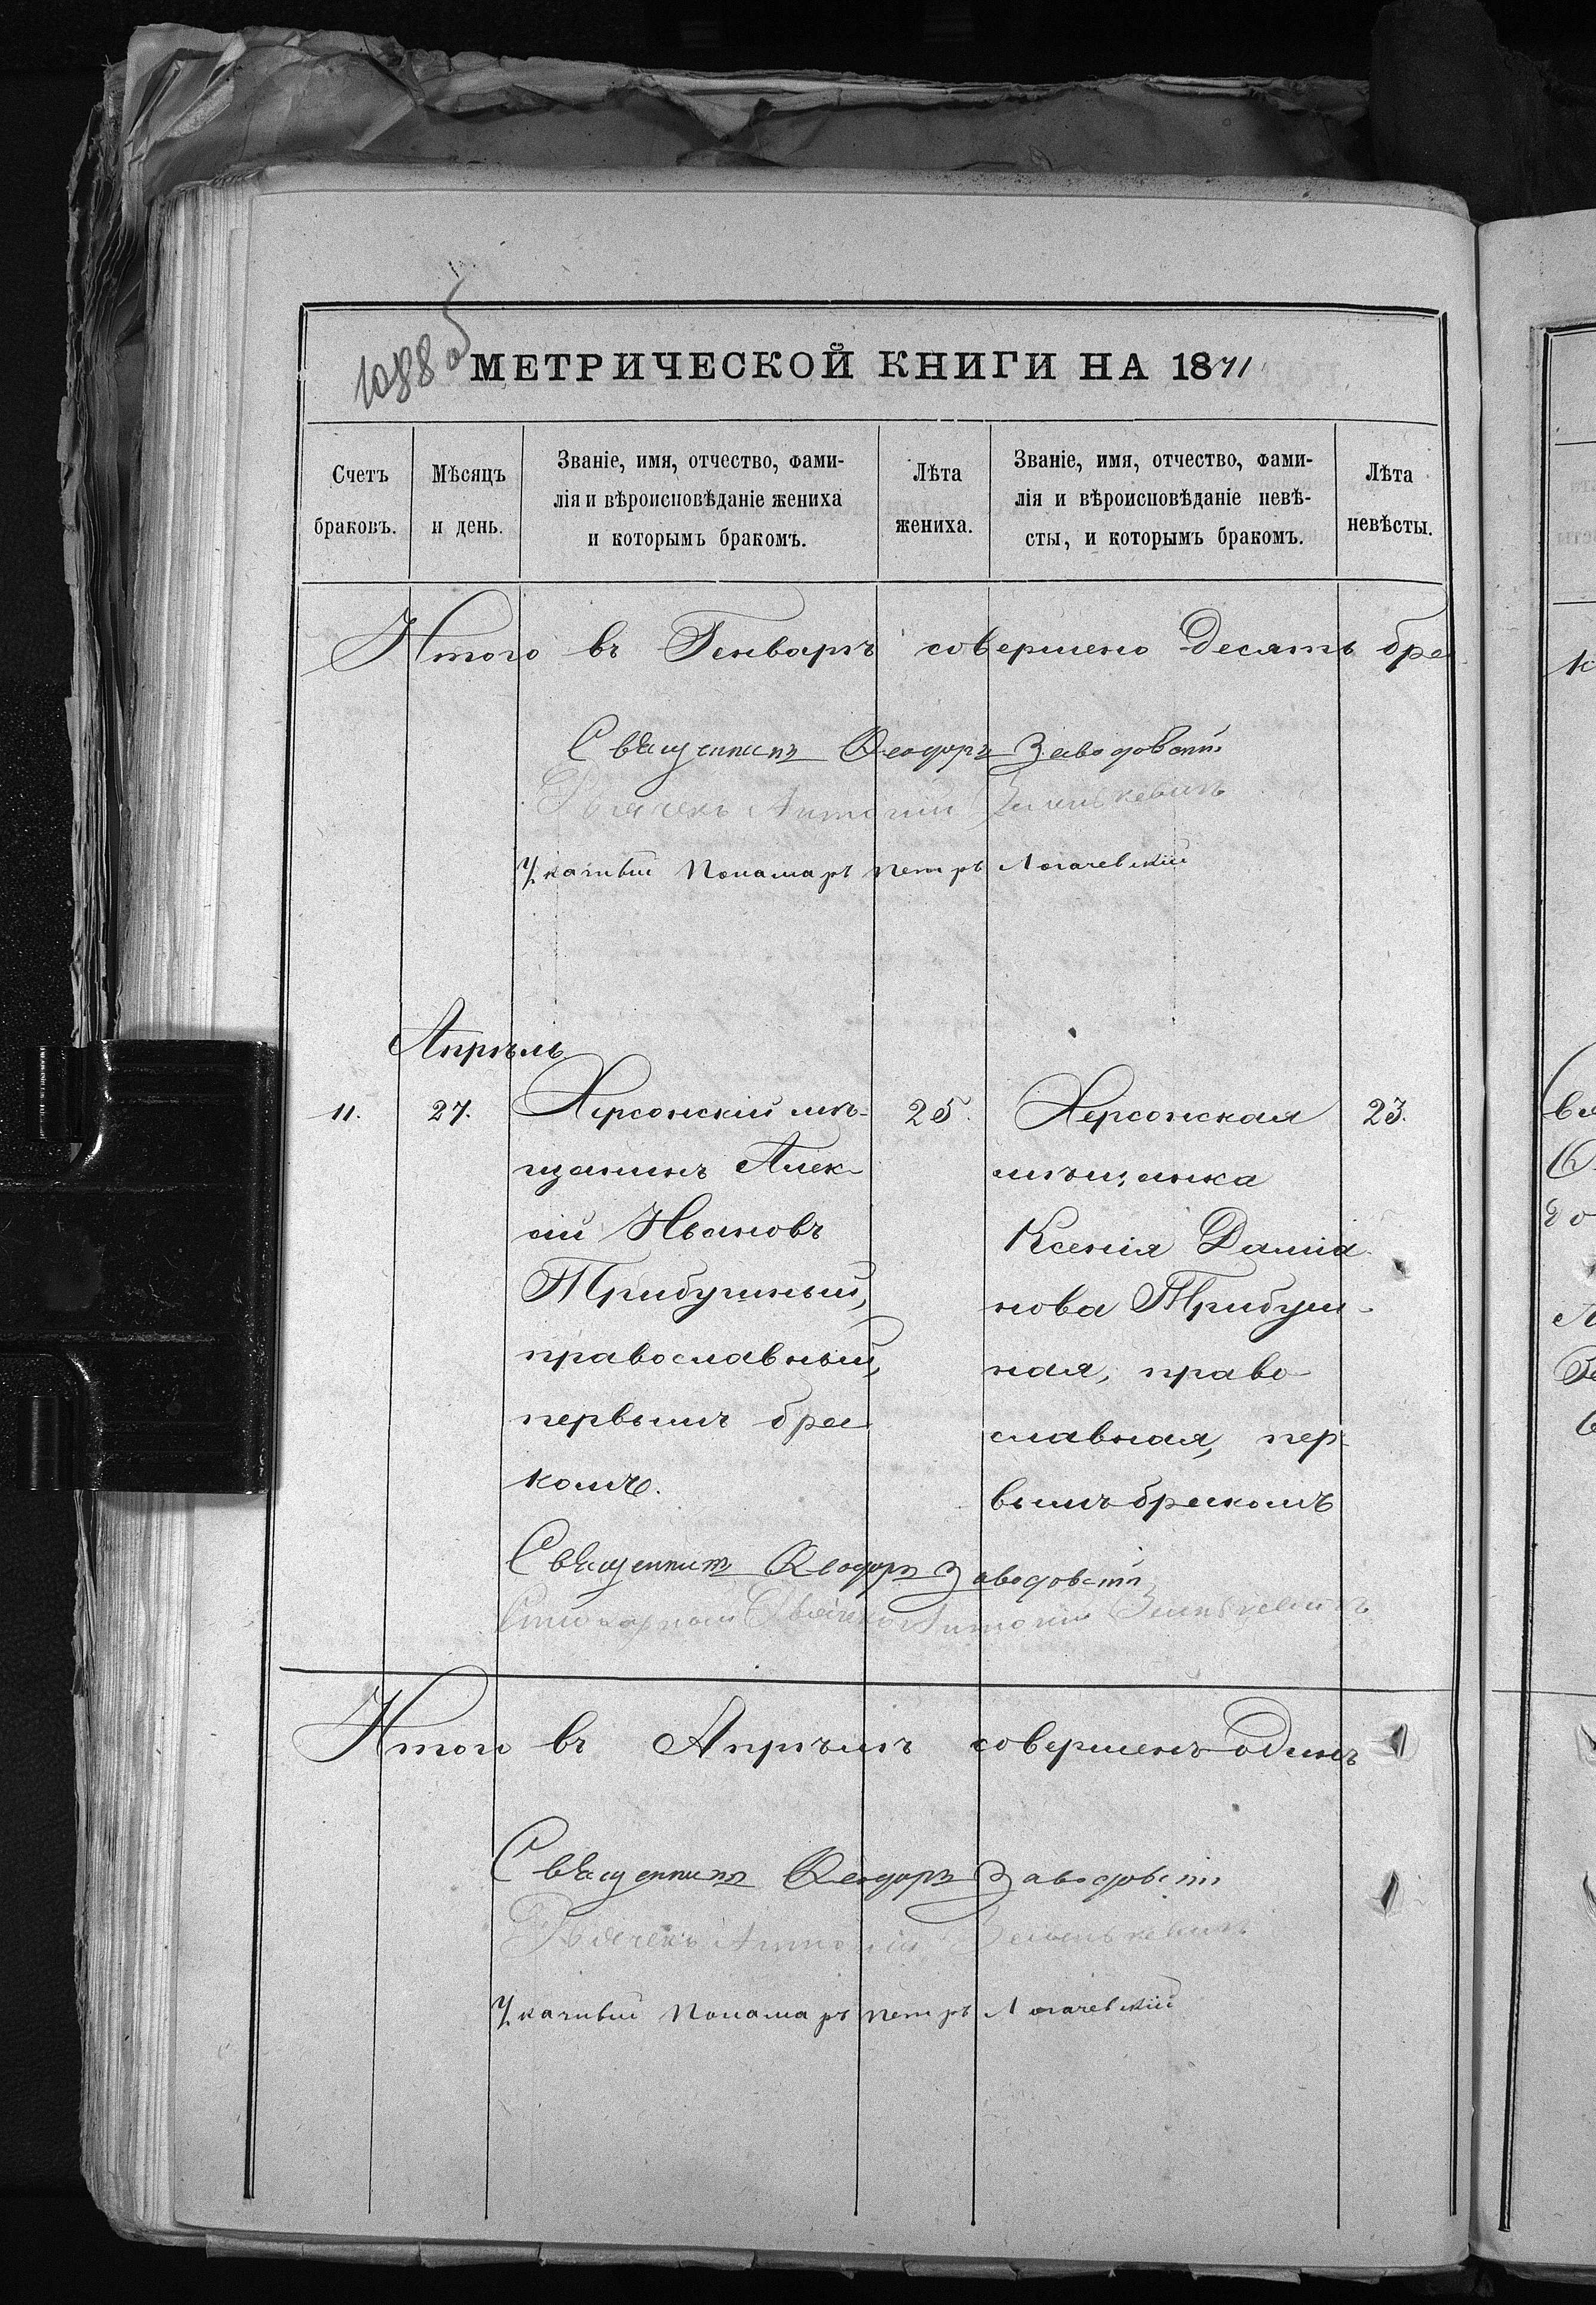 1088 об
МЕТРИЧЕСКОЙ КНИГИ НА 1871
Счетъ браковъ.
Мѣсяцъ и день.
Званіе, имя, отчество, фами-
лія и вѣроисповѣданіе жениха
и которымъ бракомъ.
Лѣта жениха.
Званіе, имя, отчество, фами-
лія и вѣроисповѣданіе невѣ-
сты, и которымъ бракомъ.
Лѣта невѣсты.
Итого въ Генварѣ совершено десять бра
Священникъ Ѳеодоръ Заводовскій
Дьячекъ Антоній
Указный Пономарь Петръ Логачевскій
Апрѣль
11.
27.
Херсонскій мѣ-
щанинъ Алек-
сій Ивановъ
Трибушный,
православный,
первымъ бра
комъ.
25.
Херсонская
мѣщанка
Ксенія Даміа
нова Трибуш-
ная, право-
славная, пер-
вымъ бракомъ
23.
Священникъ Ѳеодоръ Заводовскій
Дьячекъ Антоній
Итого въ Апрѣлѣ совершенъ одинъ
Священникъ Ѳеодоръ Заводовскій
Дьячекъ Антоній
Указный Пономарь Петръ Логачевскій